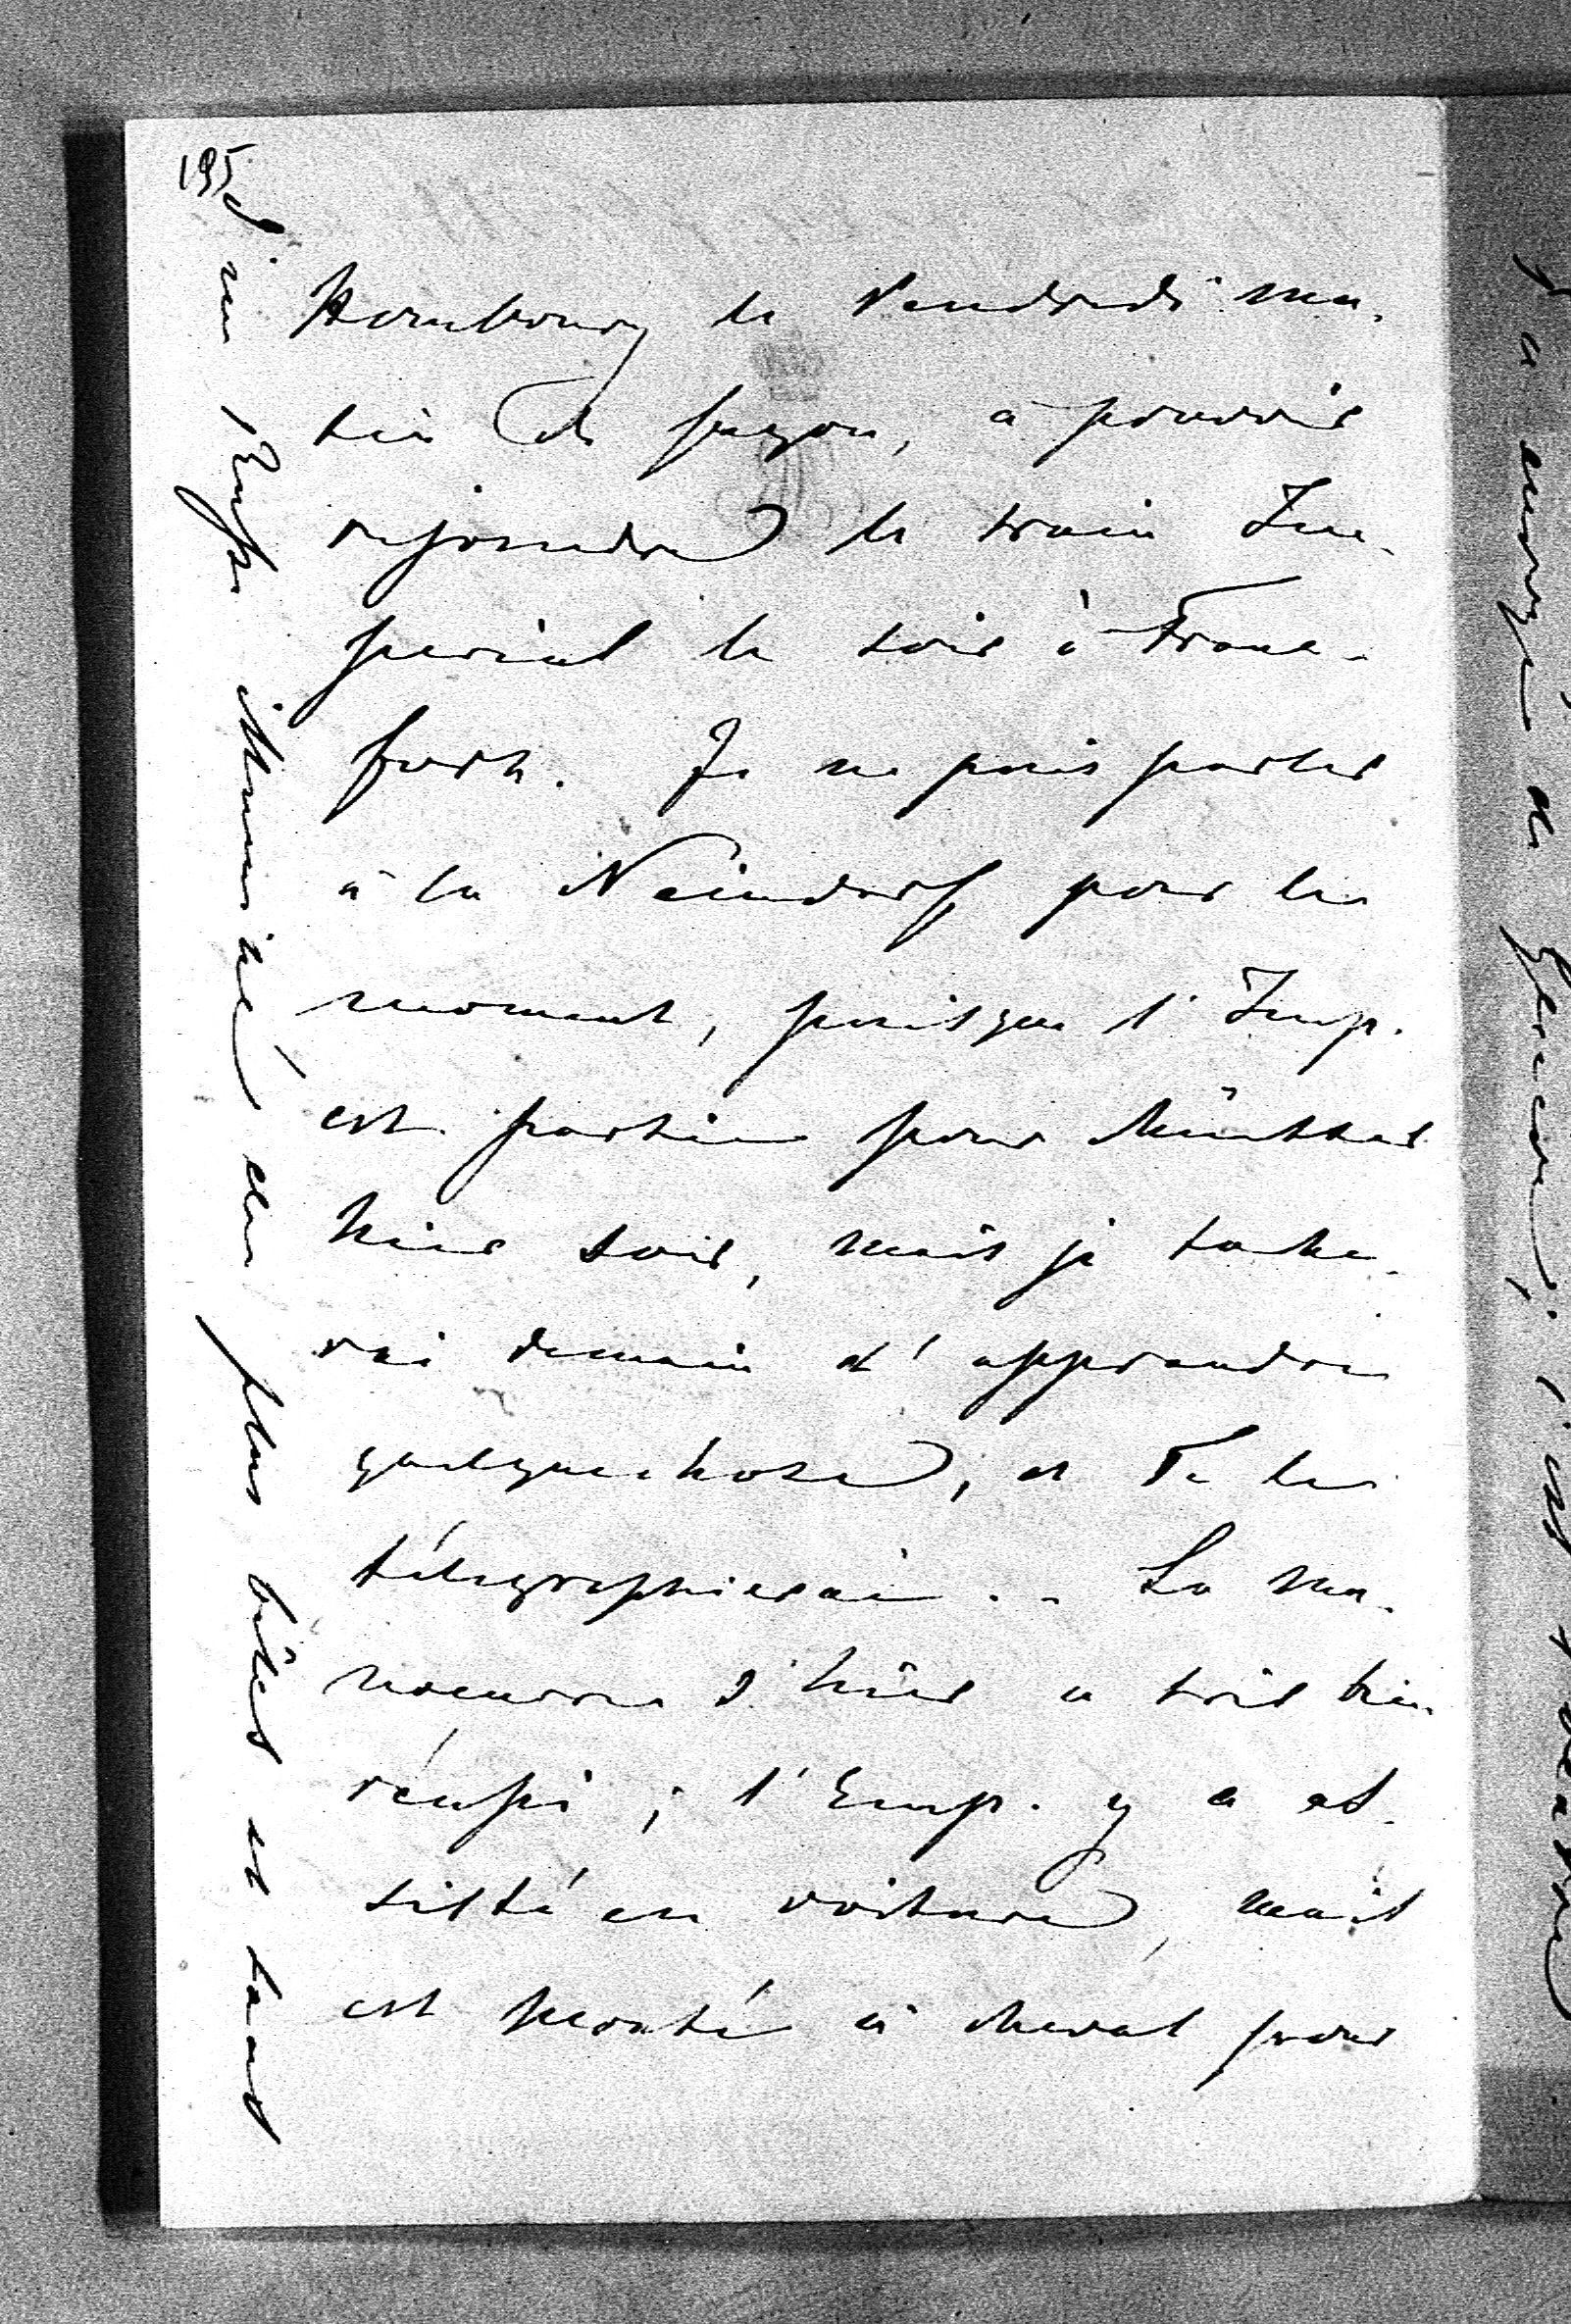 195
Hombourg le Vendredi ma-
tin de façon, à pouvoir
rejoindre le train Im-
perial le soir à Franc-
fort. Je ne puis parler
à la Neindorff pour le
moment, puisque l'Imp.
est partie pour Münster
hier soir, mais je tache-
rai demain d'apprendre
quelquechose, et Te le
télegraphierai. - La ma-
noeuvre d'hier a très bien
réussi; l'Emp. y a as-
sisté en voiture, mais
est monté à cheval pour
d'un Russe des plus bêtes et